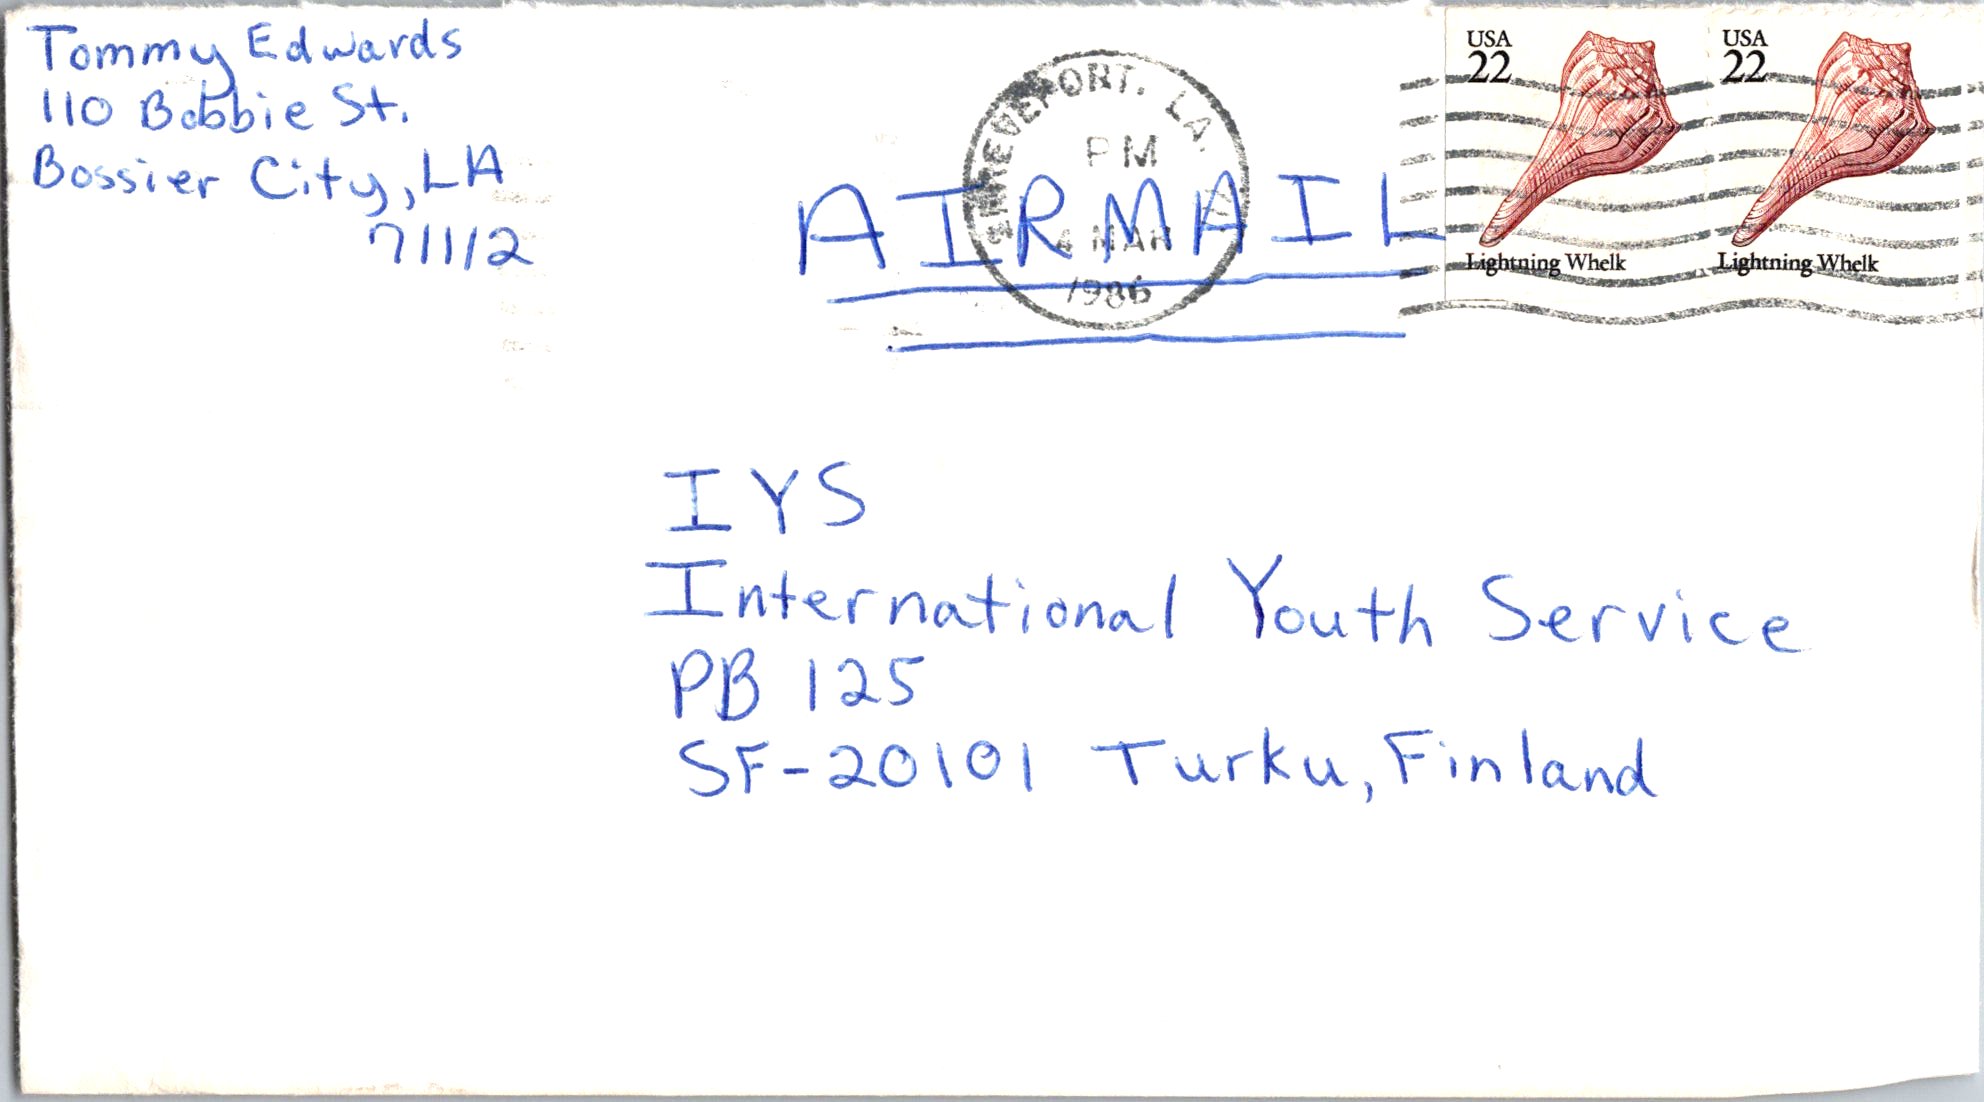 Tommy Edwards
110 Bobbie St.
Bossier City, LA
71112
SHREVEPORT, LA.
PM
4 MAR
1986
AIRMAIL
USA
22
Lightning Whelk
USA
22
Lightning Whelk
IYS
International Youth Service
PB 125
SF-20101 Turku, Finland